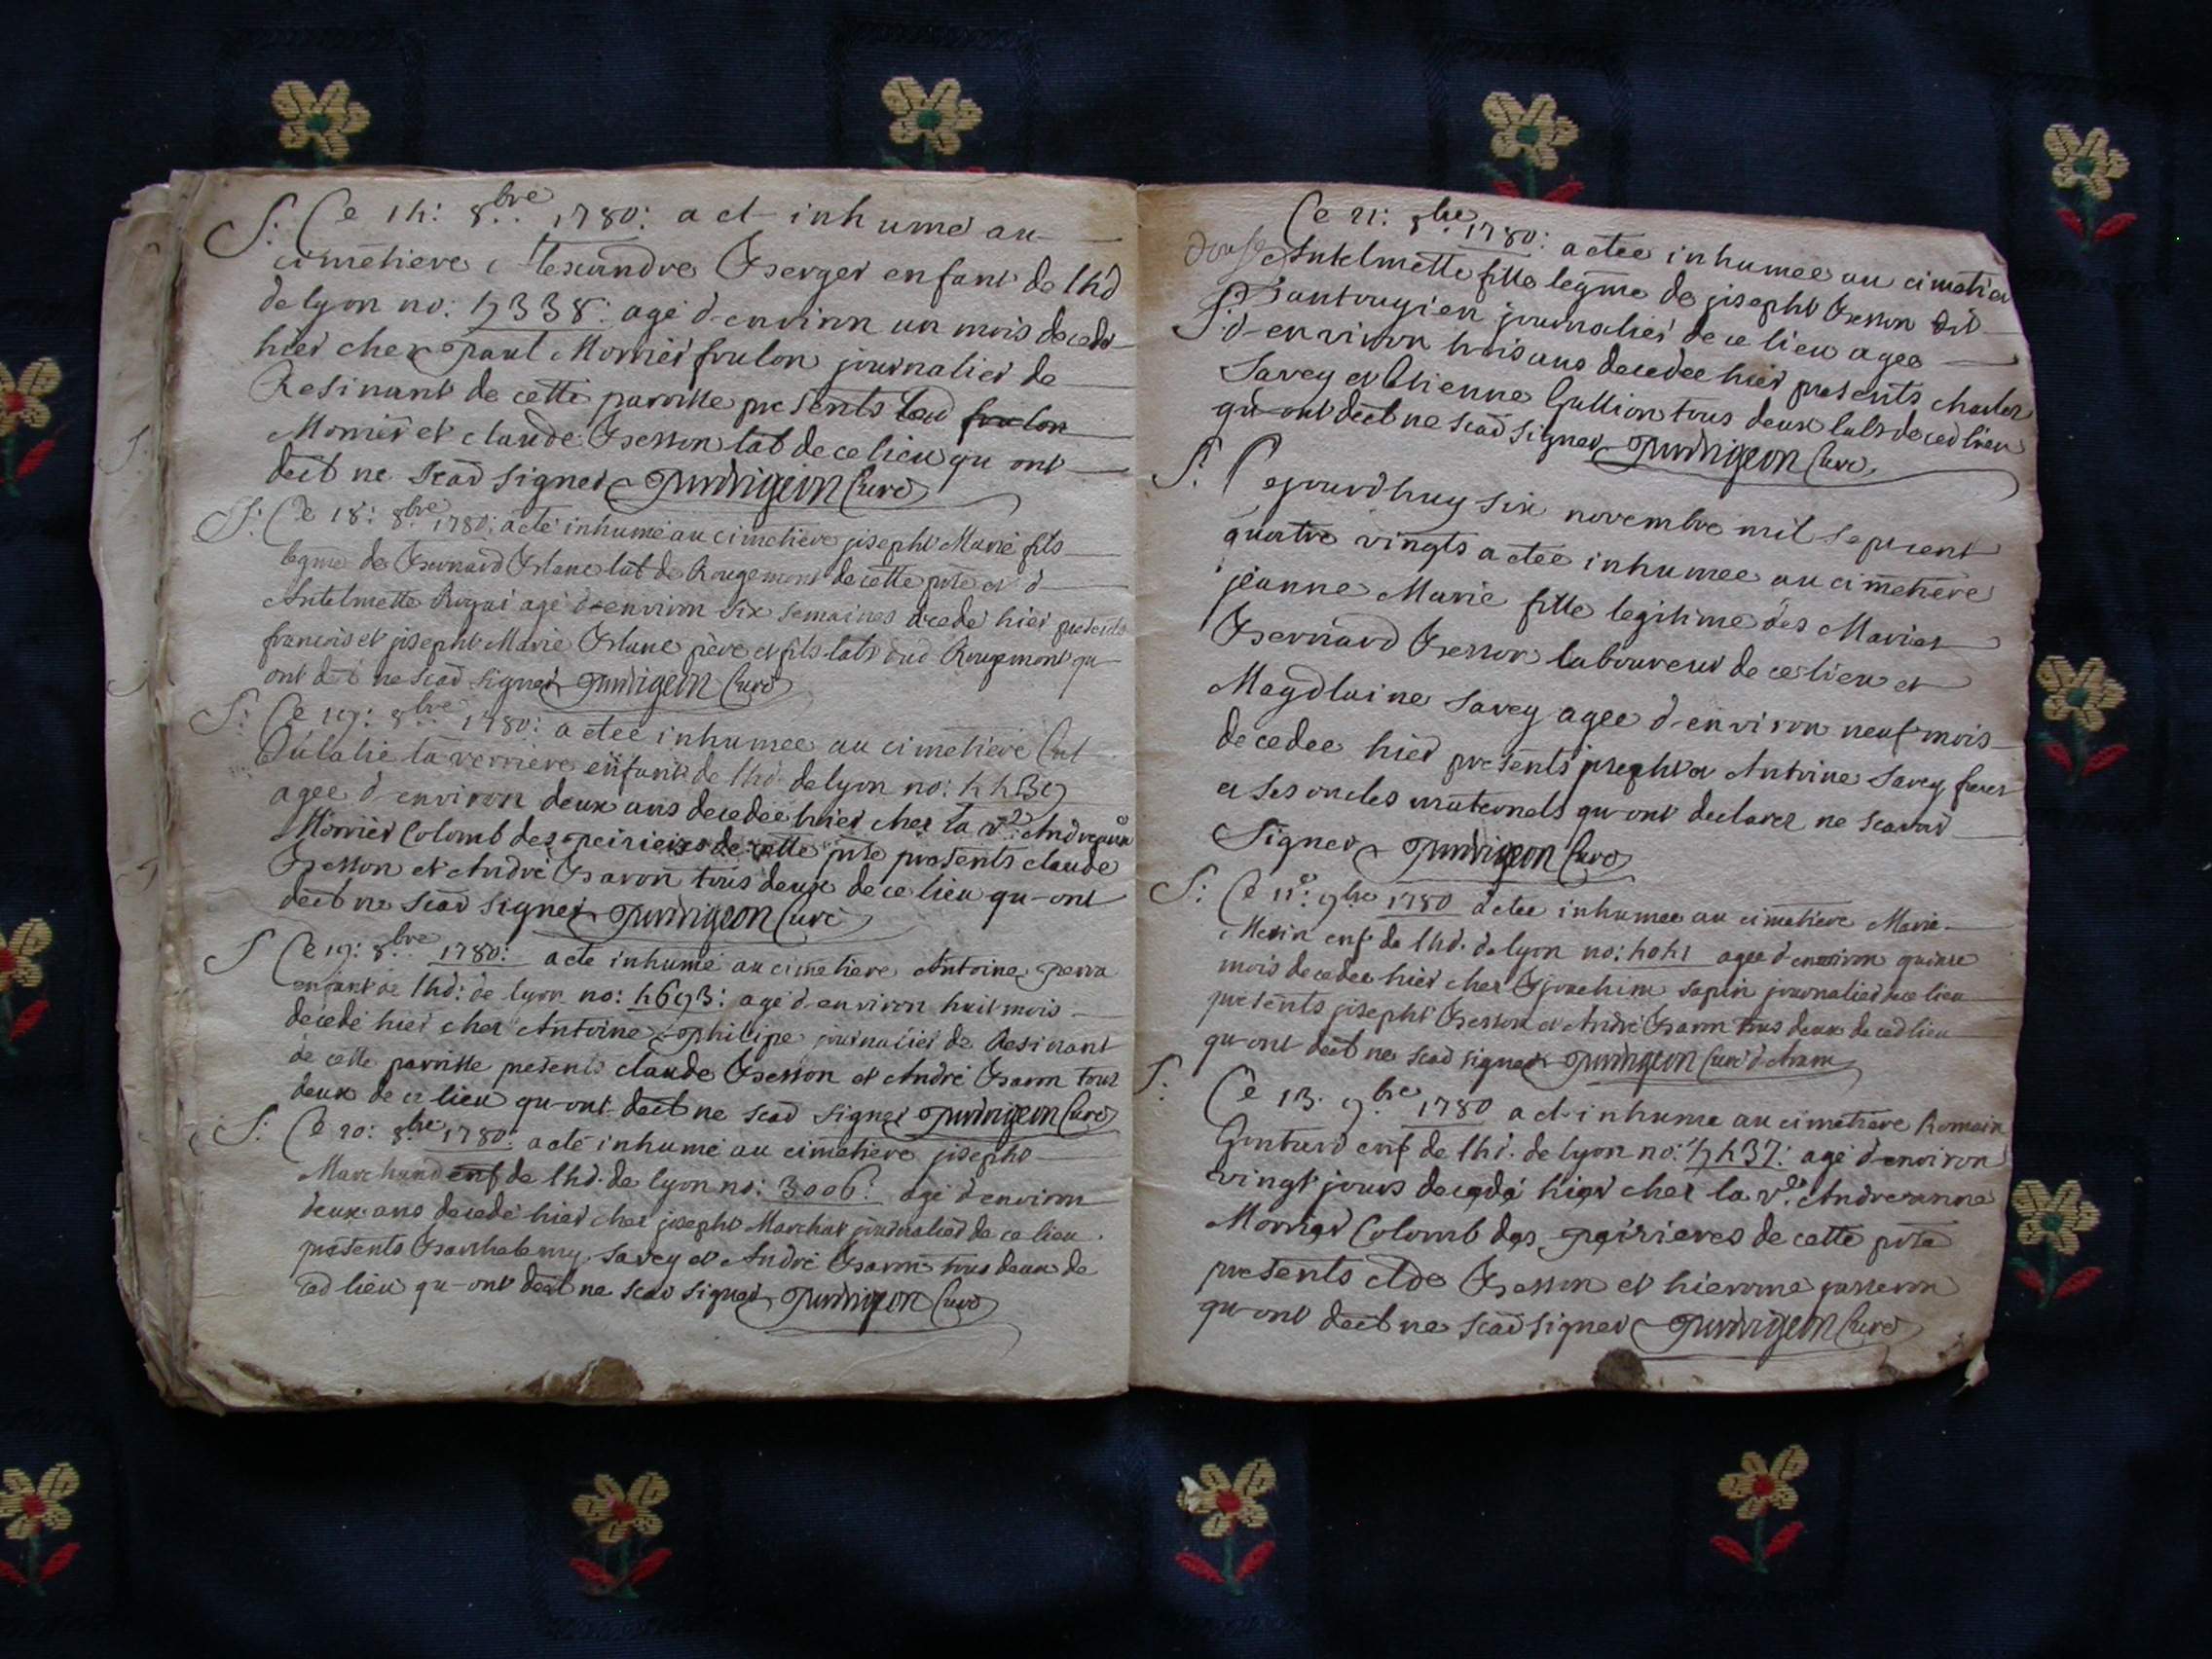 S: Ce 14: 8bre 1780: a et inhumé au
cimetiere Alexandre Berger enfant de lhd
de lyon no: 5338: agé d-environ un mois decedé
hier chez paul Morrier foulon journalier de
Resinant de cette paroisse presents led foulon
Morrier et claude Besson lab de ce lieu qu ont
declt ne scad signer Curé
S: Ce 18: 8bre 1780: a eté inhumé au cimetiere joseph Marie fils
legme de Bernard Blanc lab de Rougemont de cette psse et d
Antelmette agé d-environ six semaines decedé hier presents
francois et joseph Marie Blanc père et fils labs dud Rougemont qu
ont dect ne scad signer Curé
S: Ce 19: 8bre 1780: a etee inhumee au cimetiere
Eulalie la verriere enfant de lhd. de lyon no: 4439
agee d-environ deux ans decedee hier chez la ve Andreanne
Morrier Colomb des peirieres de cette psse presents claude
Besson et André Baron tous deux de ce lieu qu-ont
declt ne scad signer Curé
S Ce 19: 8bre 1780: a eté inhumé au cimetiere Antoine perra
enfant de lhd: de lyon no: 4693: agé d-environ huit mois
decedé hier chez Antoine philippe journalier de Resinant
de cette paroisse presents claude Besson et André Baron tous
deux de ce lieu qu-ont declt ne scad signer Curé
S: Ce 20: 8bre 1780: a eté inhumé au cimetiere joseph
Marchand enf de lhd. de lyon no: 3006: agé d-environ
deux ans decedé hier chez joseph Marchat journalier de ce lieu
presents Barthelemy Savey et André Baron tous deux de
ced lieu qu-ont declt ne scad signer Curé
Ce 21: 8bre 1780: a etee inhumee au cimetier
Antelmette fille legme de joseph Besson dit
journalier de ce lieu agee
S: d-environ trois ans decedee hier presents charles
Savey et Etienne Gullion tous deux labs de ced lieu
qu-ont declt ne scad signer Curé
S: Cejourdhuy six novembre mil sept cent
quatre vingts a etee inhumee au cimetiere
jeanne Marie fille legitime des Maries
Bernard Besson laboureur de ce lieu et
Magdlaine Savey agee d-environ neuf mois
decedee hier presents joseph et Antoine Savey freres
et ses oncles maternels qu-ont declarez ne scavoir
Signer Curé
S: Ce 11e: 9bre 1780 a etee inhumee au cimetiere Marie
enf de lhd. de lyon no: 4041 agee d-environ quinze
mois decedee hier chez joachim Sapin journalier de ce lieu
presents joseph Besson et André Baron tous deux de ced lieu
qu-ont declt ne scad signer Curé d-Aram
S: Ce 13. 9bre 1780 a et inhumé au cimetiere Romain
Gontard enf de lhd. de lyon no: 5437: agé d-environ
vingt jours decedé hier chez la ve. Andreanne
Morrier Colomb des peirieres de cette psse
presents Clde Besson et hierome passeron
qu-ont declt ne scad signer Curé